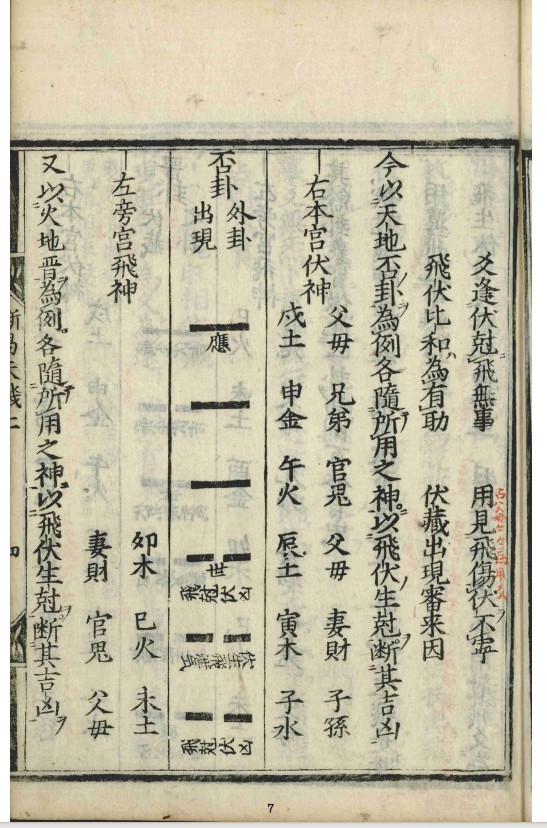 爻逢伏尅飛無事　用見飛傷伏不寧
飛伏比和為有助　伏藏出現審來因
今以天地否卦為例各隨所用之神以飛伏生尅断其吉凶
父母　兄弟　官鬼　父母　妻財　子孫
右本宮伏神
戌土　申金　午火　辰土　寅木　子水
否卦　外卦出現
應
世
飛尅伏凶
飛尅伏凶
左旁宮飛神
卯木　巳火　未土
妻財　官鬼　父母
又以火地晋為例各隨所用之神以飛伏生尅断其吉凶
四
7